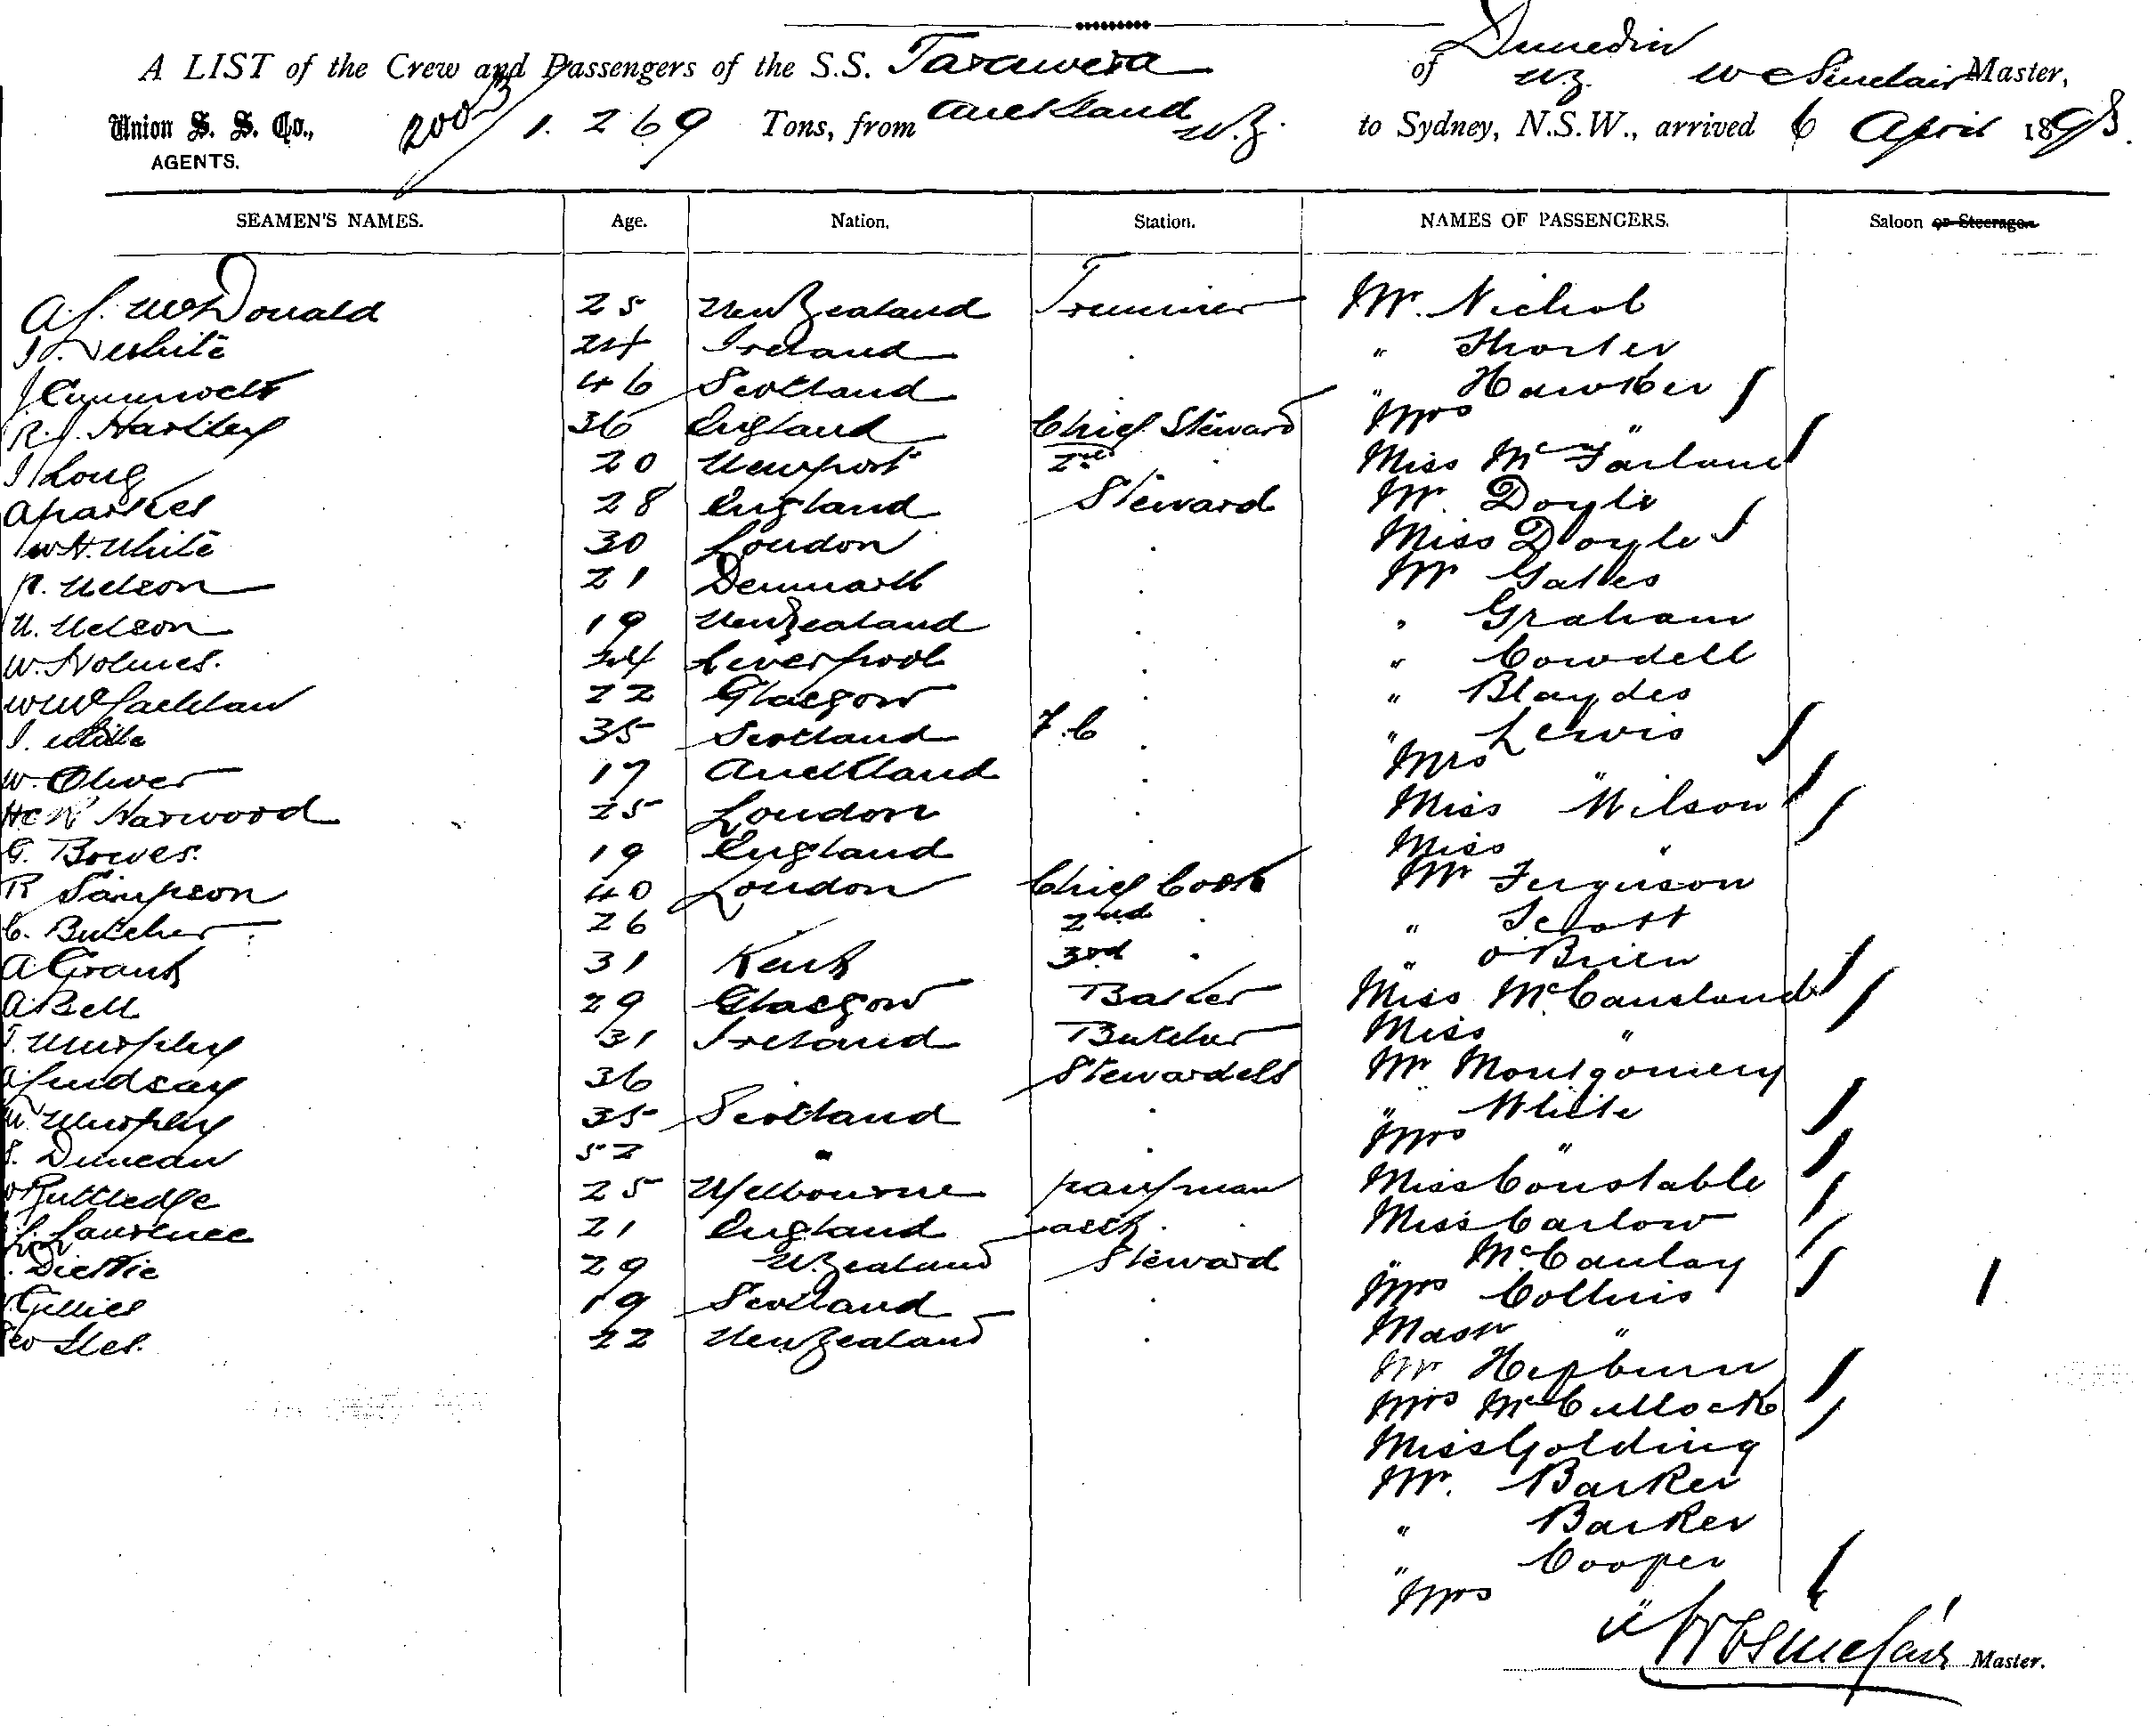 A LIST of the Crew and Passengers of the S.S. Tarawera of Dunedin N.Z. W C Sinclair Master,
Union S. S. Co., 1.269 Tons, from Auckland N.Z. to Sydney, N.S.W., arrived 6 April 1893.
AGENTS.
SEAMEN'S NAMES. Age. Nation. Station. NAMES OF PASSENGERS. Saloon or Steerage.
McDonald 25 New Zealand Trimmer Mr. Nichol
White 24 Ireland . " Shorter
46 Scotland " Hawker
R. J. Hartley 36 England Chief Steward Mrs "
Long 20 Newport 2nd . Miss McFarland
28 England Steward Mr. Doyle
W H. White 30 London . Miss Doyle
Nelson 21 Denmark . Mr
N. Nelson 19 New Zealand . " Graham
W. Holmes. 24 Liverpool . " Cowdell
W McLachlan 22 Glasgow . " Blaydes
35 Scotland F.C . " Lewis
W. Oliver 17 Auckland . Mrs "
Harwood 25 London . Miss Wilson
G. Bowes. 19 England . Miss "
R Sampson 40 London Chief Cook Mr Ferguson
C. Butcher 26 2nd . " Scott
A Grant 31 Kent 3rd . " O'Brien
A. Bell 29 Glasgow Baker Miss McCausland
T. Murphy 31 Ireland Butcher Miss "
A Lindsay 36 Stewardess Mr Montgomery
Murphy 35 Scotland . " White
S. Duncan 52 " . Mrs "
Ruttledge 25 Melbourne Pantryman Miss Constable
Lawrence 21 England asst. . Miss Carlow
Dickie 29 N. Zealand Steward " McCaulay
Gillies 19 Scotland . Mrs Collins
Geo Iles. 22 New Zealand . Mastr "
Mr Hepburn
Mrs McCullock
Miss Golding
Mr. Barker
" Barker
" Cooper
Mrs "
W C Sinclair Master.